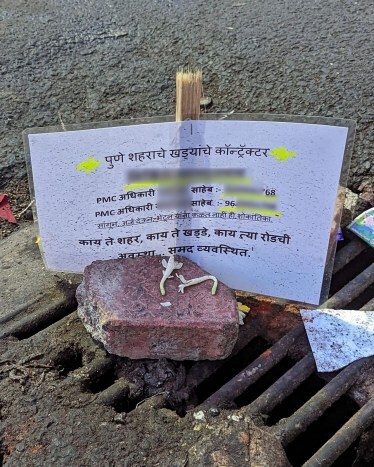 पुणे शहराचे खड्यांचे कॉन्ट्रॅक्टर
PMC अधिकारी साहेब :- 68
PMC अधिकारी साहेब :- 96
सांगून, अर्ज देऊन, भेटून यांना कळले नाही ही शोकांतिका.
काय ते शहर, काय ते खड्डे, काय त्या रोडची
अवस्था समद व्यवस्थित.